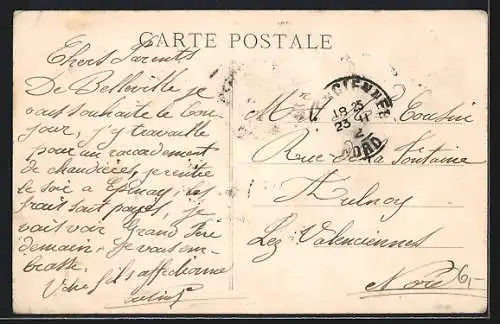 CARTE POSTALE
Chers Parents
De Belleville je
vous souhaite le bon
jour, j'y travaille
pour un raccordement
de chaudières, je rentre
le soir à Epinay, les
frais sont payés, je
vais voir Grand Père
demain. Je vous em-
brasse.
Votre fils affectionné
VALENCIENNES
18-25
23
NORD
M Cousin
Rue de la Fontaine
Aulnoy
Lez Valenciennes
Nord
6,-